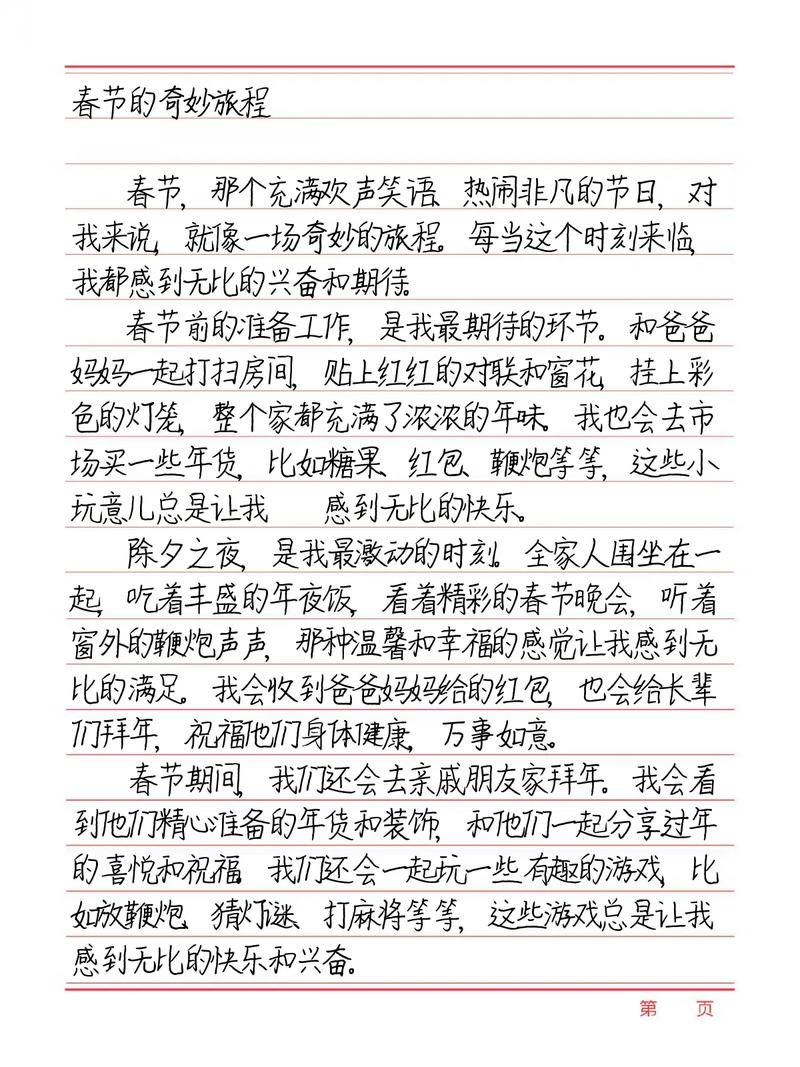 春节的奇妙旅程
春节，那个充满欢声笑语、热闹非凡的节日，对
我来说，就像一场奇妙的旅程。每当这个时刻来临，
我都感到无比的兴奋和期待。
春节前的准备工作，是我最期待的环节。和爸爸
妈妈一起打扫房间，贴上红红的对联和窗花，挂上彩
色的灯笼，整个家都充满了浓浓的年味。我也会去市
场买一些年货，比如糖果、红包、鞭炮等等，这些小
玩意儿总是让我 感到无比的快乐。
除夕之夜，是我最激动的时刻。全家人围坐在一
起，吃着丰盛的年夜饭，看着精彩的春节晚会，听着
窗外的鞭炮声声，那种温馨和幸福的感觉让我感到无
比的满足。我会收到爸爸妈妈给的红包，也会给长辈
们拜年，祝福他们身体健康，万事如意。
春节期间，我们还会去亲戚朋友家拜年。我会看
到他们精心准备的年货和装饰，和他们一起分享过年
的喜悦和祝福。我们还会一起玩一些有趣的游戏，比
如放鞭炮、猜灯谜、打麻将等等，这些游戏总是让我
感到无比的快乐和兴奋。
第 页